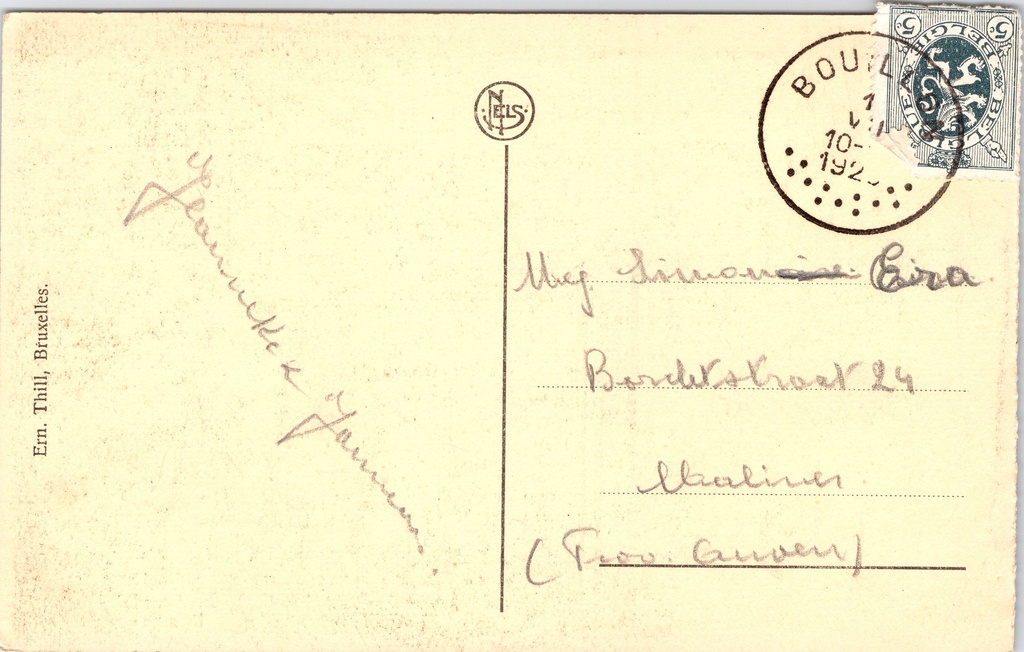 Ern. Thill, Bruxelles.
NELS
Jeanneke Janssens.
BOUILLON
10-
192
5c BELGIE 5c
BELGIQUE BELGIE
Mej. Simonne Eira
Bordetstraat 24
Malines
(Prov. Anvers)